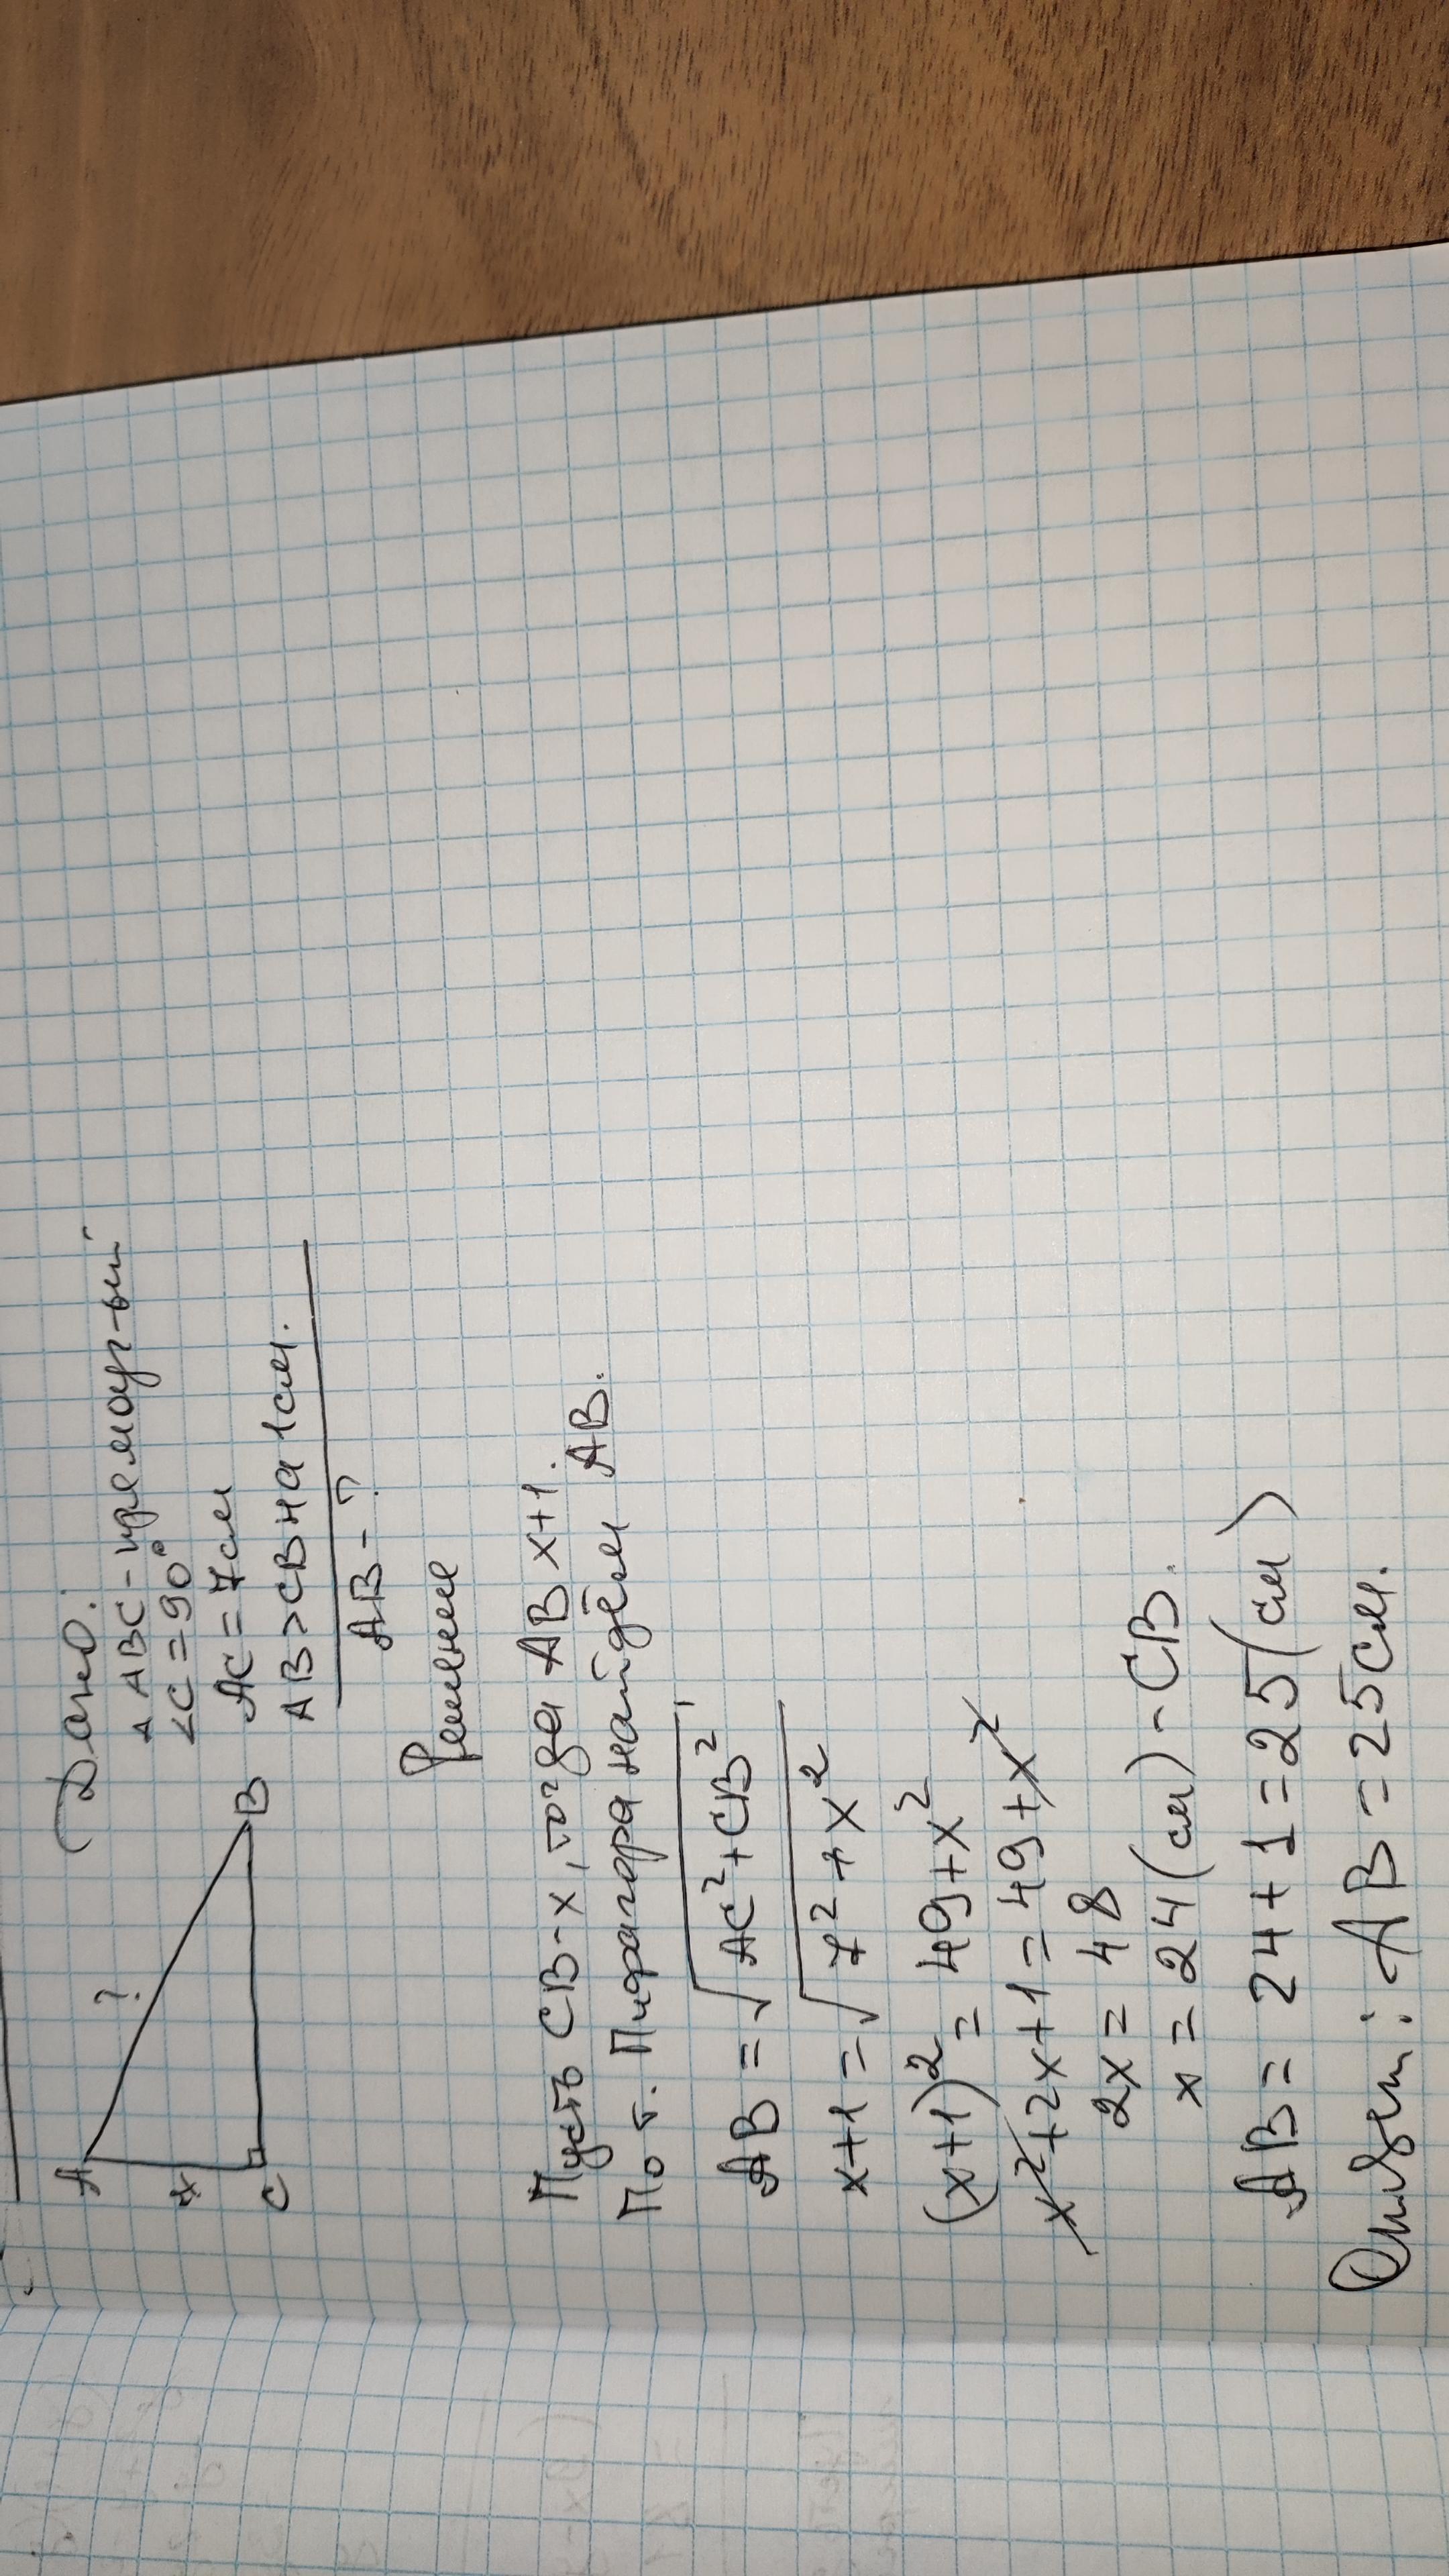 Дано:
△ABC - прямоуг-ый
∠C = 90°
AC = 7см
AB > CB на 1см.
AB - ?
A
?
7
C
B
Решение
Пусть CB - x, тогда AB x+1.
По т. Пифагора найдём AB.
AB = √AC²+CB²
x+1 = √7²+x²
(x+1)² = 49+x²
x²+2x+1 = 49+x²
2x = 48
x = 24(см) - CB.
AB = 24+1=25(см)
Ответ: AB = 25см.